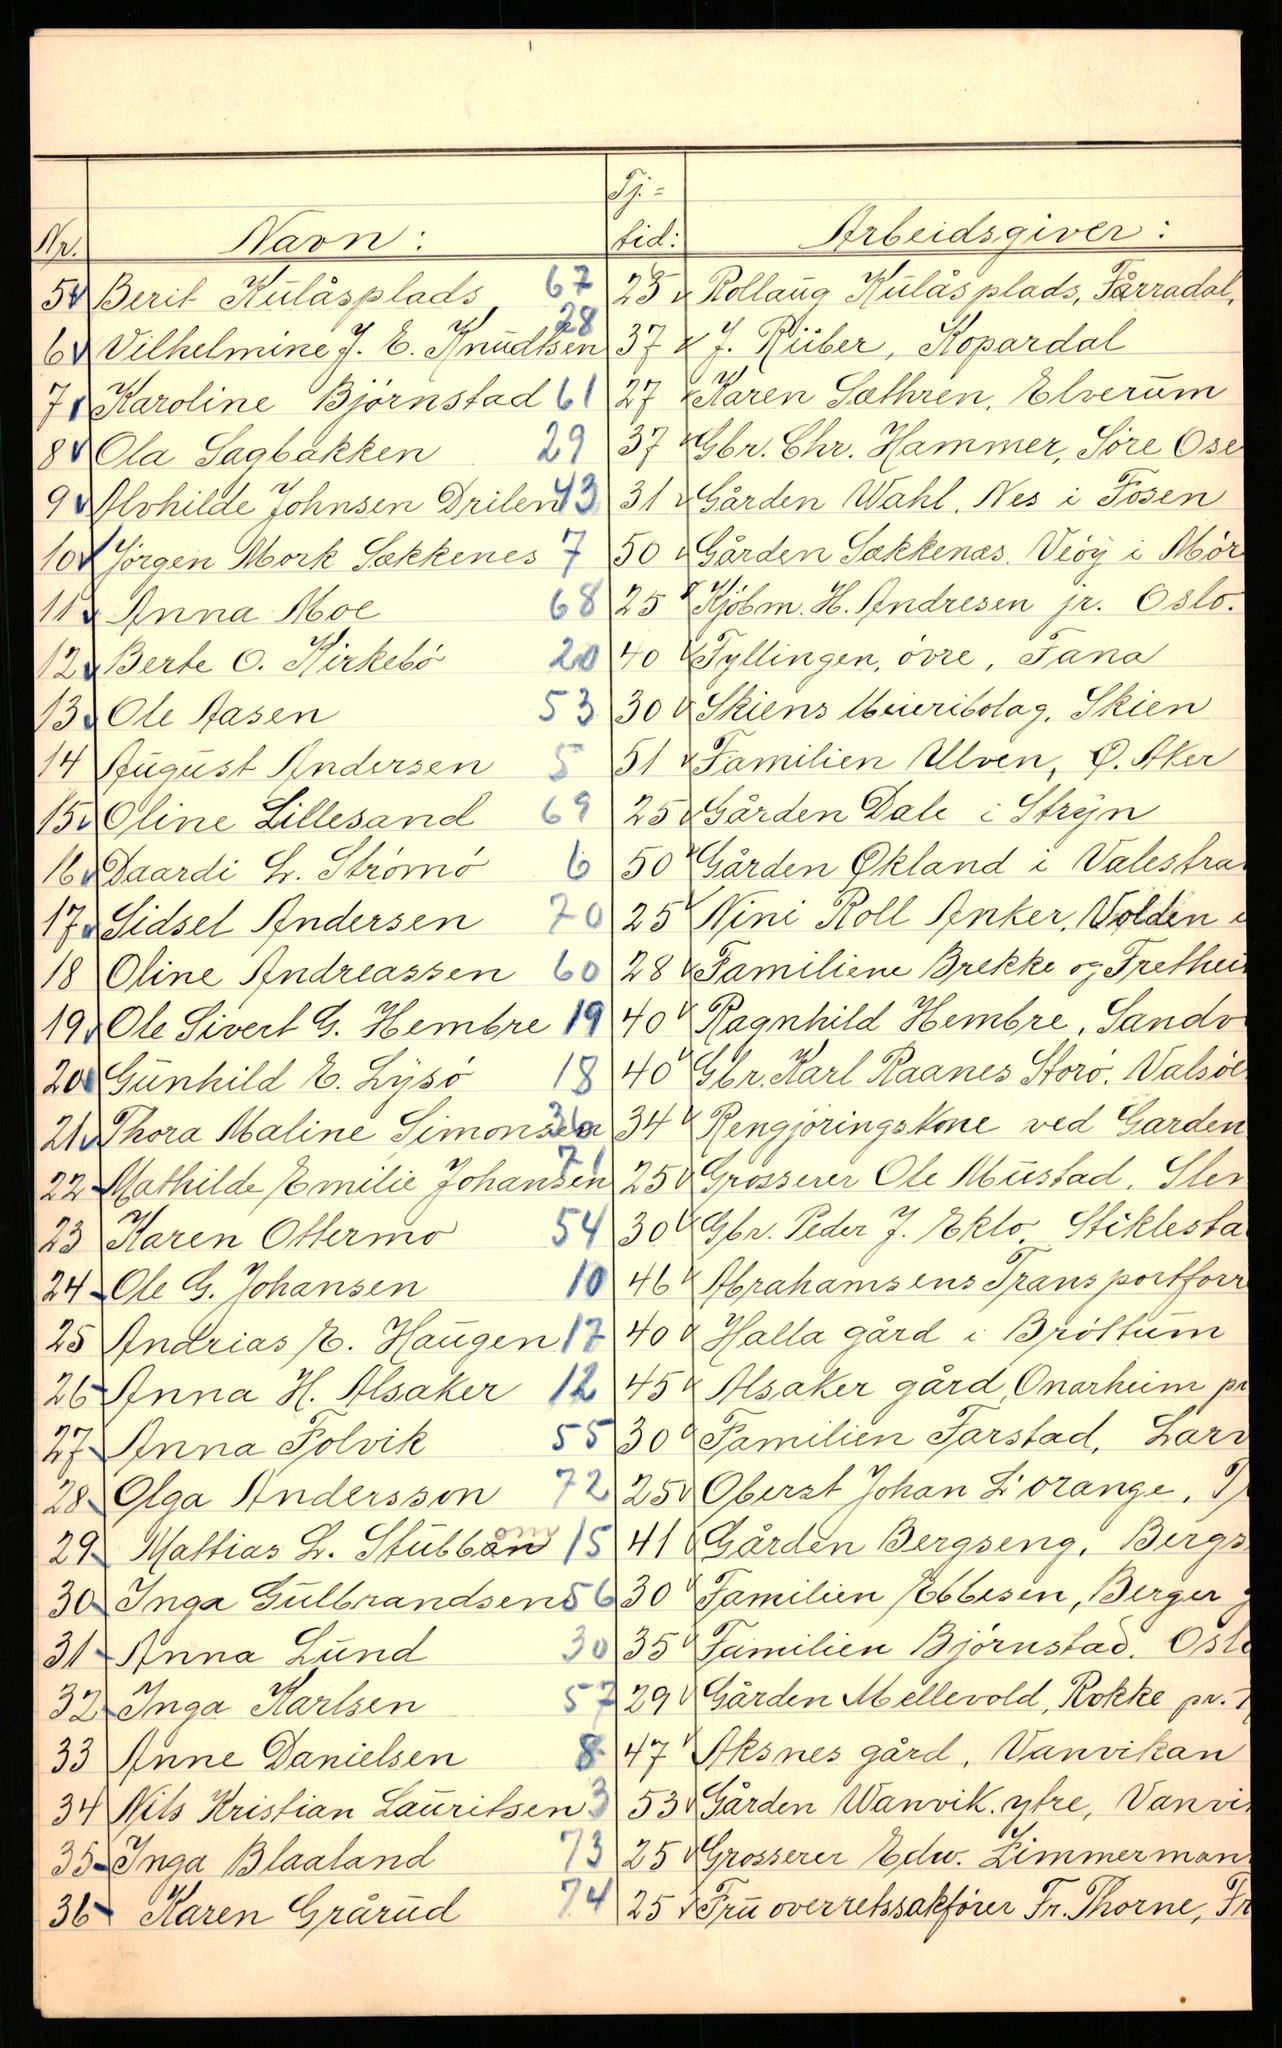 Nr. Navn: Tj.= tid: Arbeidsgiver:
5 Berit Kulåsplads 67 25 Rollaug Kulåsplads, Fårradal,
6 Vilhelmine J. E. Knudtsen 28 37 J. Rüber, Kopardal
7 Karoline Bjørnstad 61 27 Karen Sæthren, Elverum
8 Ola Sagbakken 29 37 Gbr. Chr. Hammer, Söre Ose
9 Alvhilde Johnsen Drilen 43 31 Gården Wahl, Nes i Fosen
10 Jörgen Mork Sækkenes 7 50 Gården Sækkenæs, Veöy i Mör
11 Anna Moe 68 25 Kjöbm. H. Andresen jr. Oslo.
12 Berte O. Kirkebö 20 40 Tyllingen, övre, Fana
13 Ole Aasen 53 30 Skiens Meieribolag, Skien
14 August Andersen 5 51 Familien Ulven, Ø. Aker
15 Oline Lillesand 69 25 Gården Dale i Stryn
16 Daardi L. Strömö 6 50 Gården Økland i Valestra
17 Sidsel Andersen 70 25 Nini Roll Anker, Volden
18 Oline Andreassen 60 28 Familiene Brekke og Frethei
19 Ole Sivert G. Hembre 19 40 Ragnhild Hembre, Sandv
20 Gunhild E. Lysö 18 40 Gbr. Karl Raanes Storö. Valsöe
21 Thora Maline Simonsen 36 34 Rengjöringskone ved Garden
22 Mathilde Emilie Johansen 71 25 Grosserer Ole Mustad, Slem
23 Karen Ottermo 54 30 Gbr. Peder J. Eklo, Stiklesta
24 Ole G. Johansen 10 46 Abrahamsens Transportforr
25 Andrias E. Haugen 17 40 Halla gård i Bröttum
26 Anna H. Alsaker 12 45 Alsaker gård, Onarheim pr
27 Anna Folvik 55 30 Familien Farstad, Larv
28 Olga Andersson 72 25 Oberst Johan L'orange,
29 Mattias L. Stubban om 15 41 Gården Bergseng, Bergs
30 Inga Gulbrandsen 56 30 Familien Ebbesen, Berger g
31 Anna Lund 30 35 Familien Björnstad, Oslo
32 Inga Karlsen 57 29 Gården Mellevold, Rokke pr.
33 Anne Danielsen 8 47 Aksnes gård, Vanvikan
34 Nils Kristian Lauritsen 3 53 Gården Wanvik, ytre, Vanvi
35 Inga Blaaland 73 25 Grosserer Edw. Zimmerman
36 Karen Grårud 74 25 Fru overretssakförer Fr. Thorne, Fr